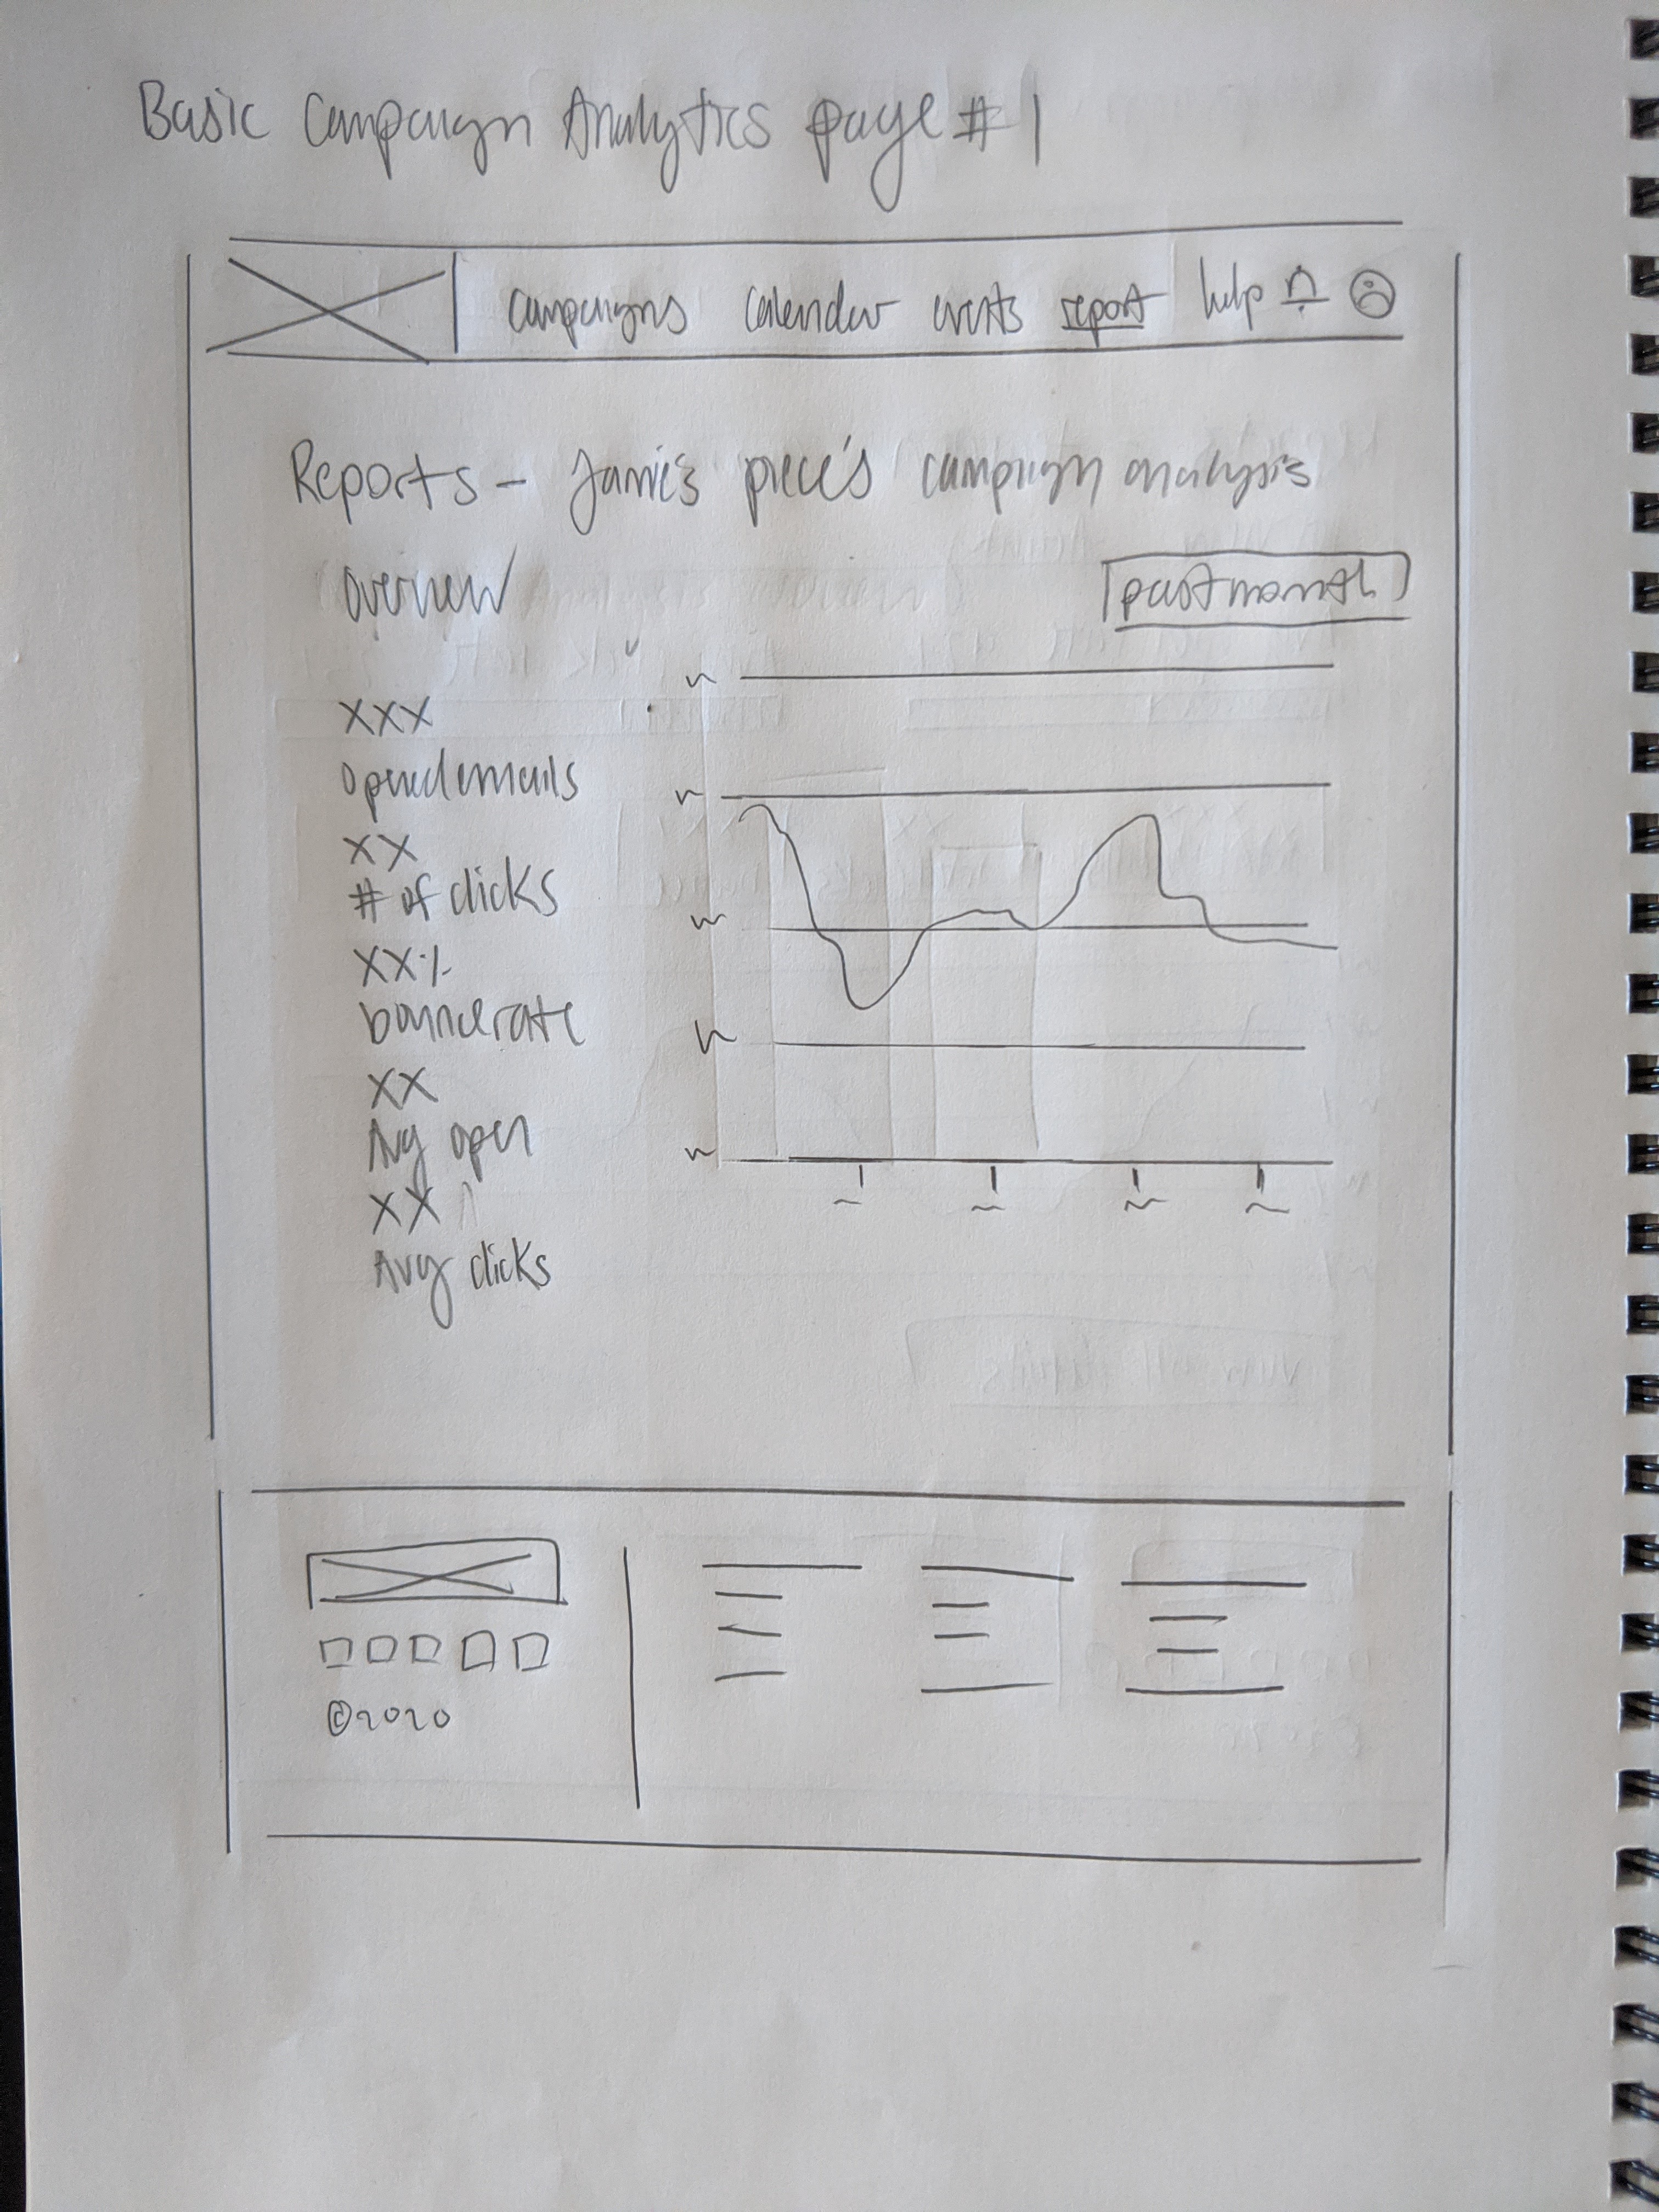 Basic Campaign Analytics page #1
campaigns calendar events report help
Reports - Jamie's piece's campaign analysis
overview
past month
XXX
opened emails
XX
# of clicks
XX%
bounce rate
XX
Avg open
XX
Avg clicks
©2020